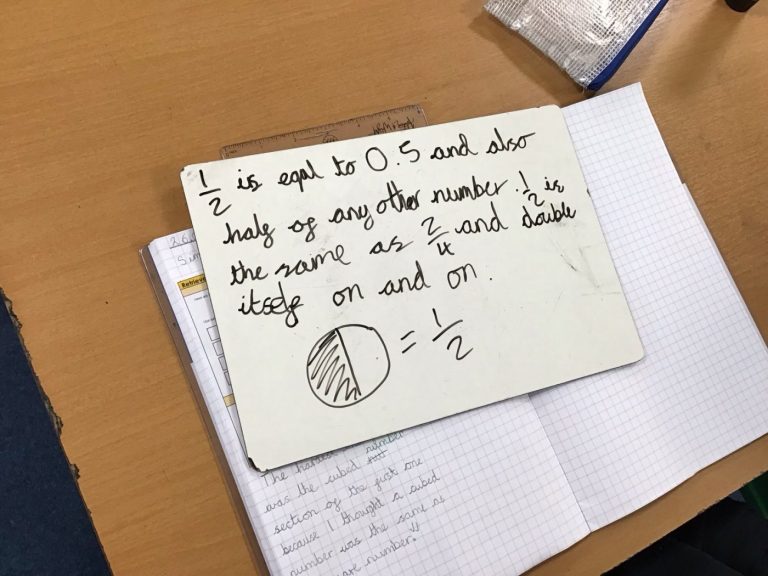 1/2 is eqal to 0.5 and also
half of any other number. 1/2 is
the same as 2/4 and double
itself on and on.
= 1/2
Retrieve
The
number
was the cubed
section of the first one
because I thought a cubed
number was the same as
number.